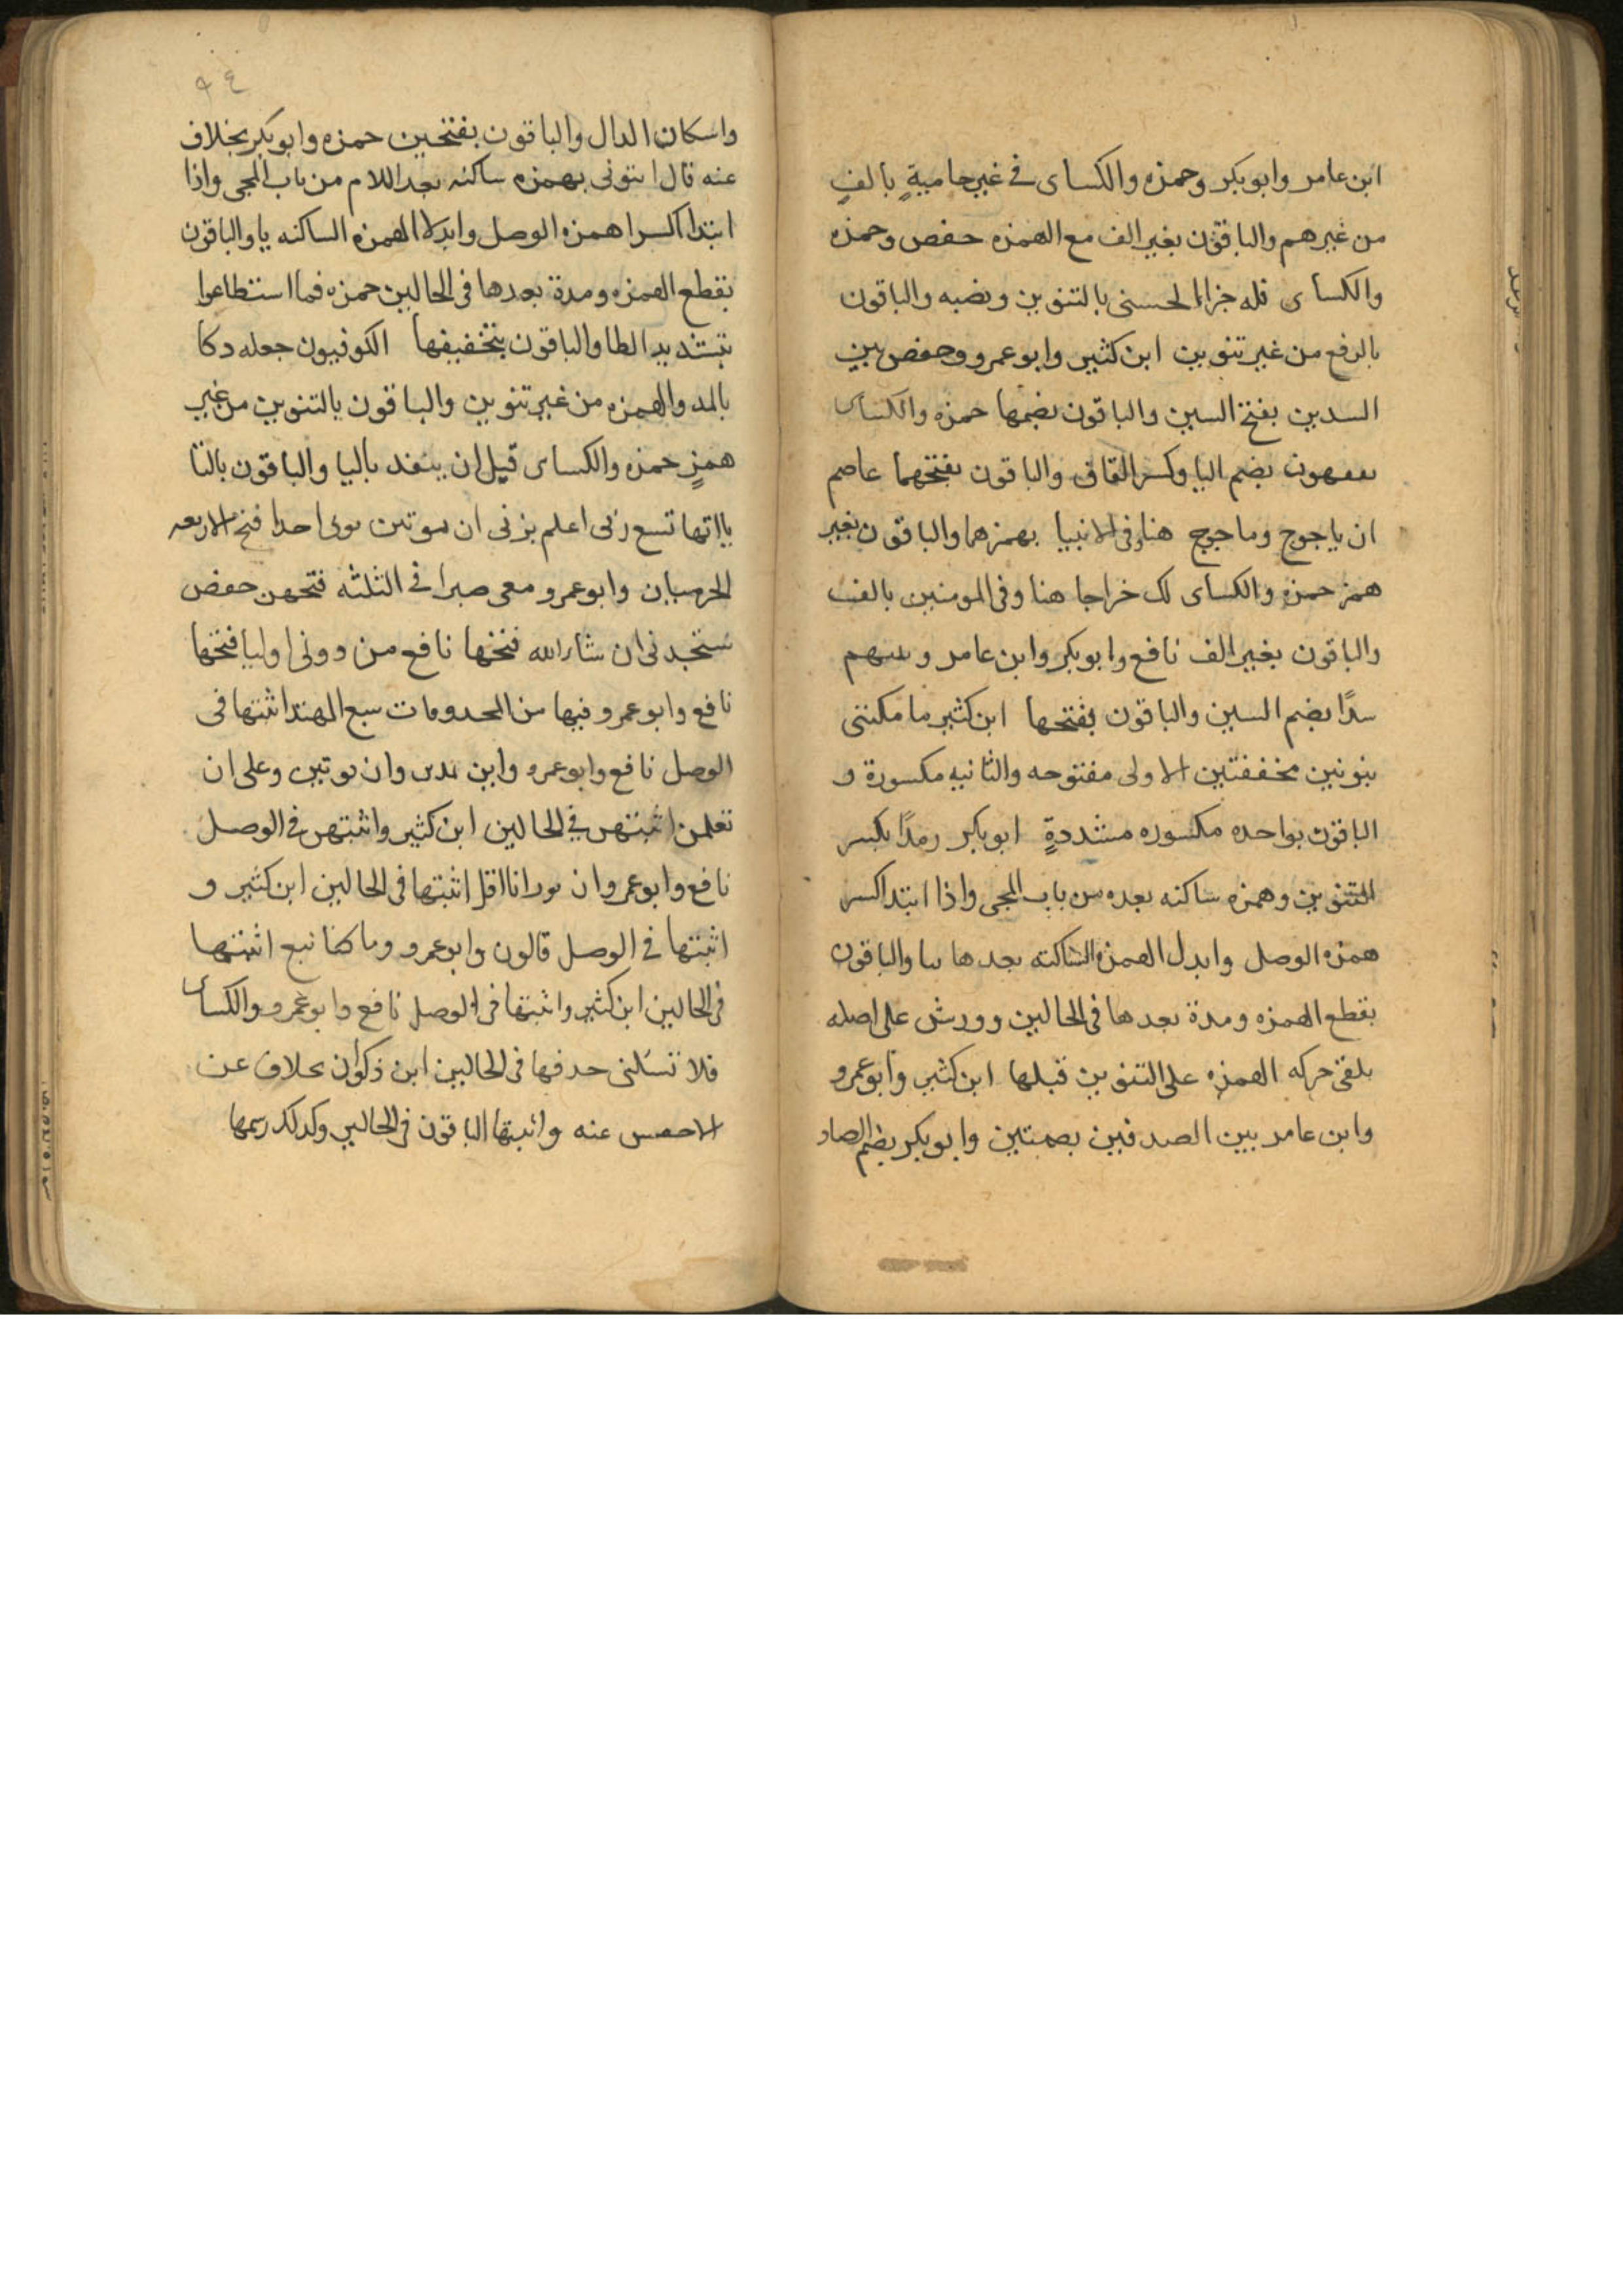 ابن عامر وابوبكر وحمزه والكساى فى غير حاميةٍ بالفٍ
من غير هم والباقون بغير الف مع الهمزه حفص وحمزه
والكساى فله جزاءا لحسنى بالتنوين ونصبه والباقون
بالرفع من غير تنوين ابن كثير وابوعمرو وحفص بين
السدين بفتح السين والباقون بضمها حمزه والكساى
يفقهون بضم اليا وكسر القاف والباقون بفتحهما عاصم
ان ياجوج وماجوج هنا وفى الانبيا بهمزهما والباقون بغير
همز حمزه والكساى لك خراجا هنا وفى المومنين بالف
والباقون بغير الف نافع وابوبكر وابن عامر وبينهم
سدًا بضم السين والباقون بفتحها ابن كثير ما مكننى
بنونين مخففتين الاولى مفتوحه والثانيه مكسورة و
الباقون بواحده مكسوره مشددةٍ ابوبكر ردمًا بكسر
التنوين وهمزه ساكنه بعده من باب المجى واذا ابتدا كسر
همزه الوصل وابدل الهمزه الساكنه بعدها يا والباقون
بقطع الهمزه ومدة بعدها فى الحالين وورش على اصله
يلقى حركه الهمزه على التنوين قبلها ابن كثير وابوعمرو
وابن عامر بين الصدفين بضمتين وابوبكر بضم الصاد
٩٤
واسكان الدال والباقون بفتحين حمزه وابوبكر بخلاف
عنه قال ايتونى بهمزه ساكنه بعد اللام من باب المجى واذا
ابتدا كسرا همزه الوصل وابدلا الهمزه الساكنه يا والباقون
بقطع الهمزه ومدة بعدها فى الحالين حمزه فما استطاعوا
بتشديد الطا والباقون بتخفيفها الكوفيون جعله دكا
بالمد والهمزه من غير تنوين والباقون بالتنوين من غير
همزٍ حمزه والكساى قبل ان ينفد باليا والباقون بالتا
يااتها تسع ربى اعلم بربى ان يوتين بربى احدا فتح الاربعه
الحرميان وابوعمرو معى صبرا فى الثلثه فتحهن حفص
ستجدنى ان شاء الله فتحها نافع من دونى اوليا فتحها
نافع وابوعمرو فيها من المحدوفات سبع المهتد اثبتها فى
الوصل نافع وابوعمرو وابن يهدين وان يوتين وعلى ان
تعلمن اثبتهن فى الحالين ابن كثير واثبتهن فى الوصل
نافع وابوعمرو ان ترن انا اقل اثبتها فى الحالين ابن كثير و
اثبتها فى الوصل قالون وابوعمرو وما كنا نبغ اثبتها
فى الحالين ابن كثير واثبتها فى الوصل نافع وابوعمرو والكساى
فلا تسئلنى حدفها فى الحالين ابن ذكوان بخلاف عن
الاخفش عنه واثبتها الباقون فى الحالين وكذلك رسمها